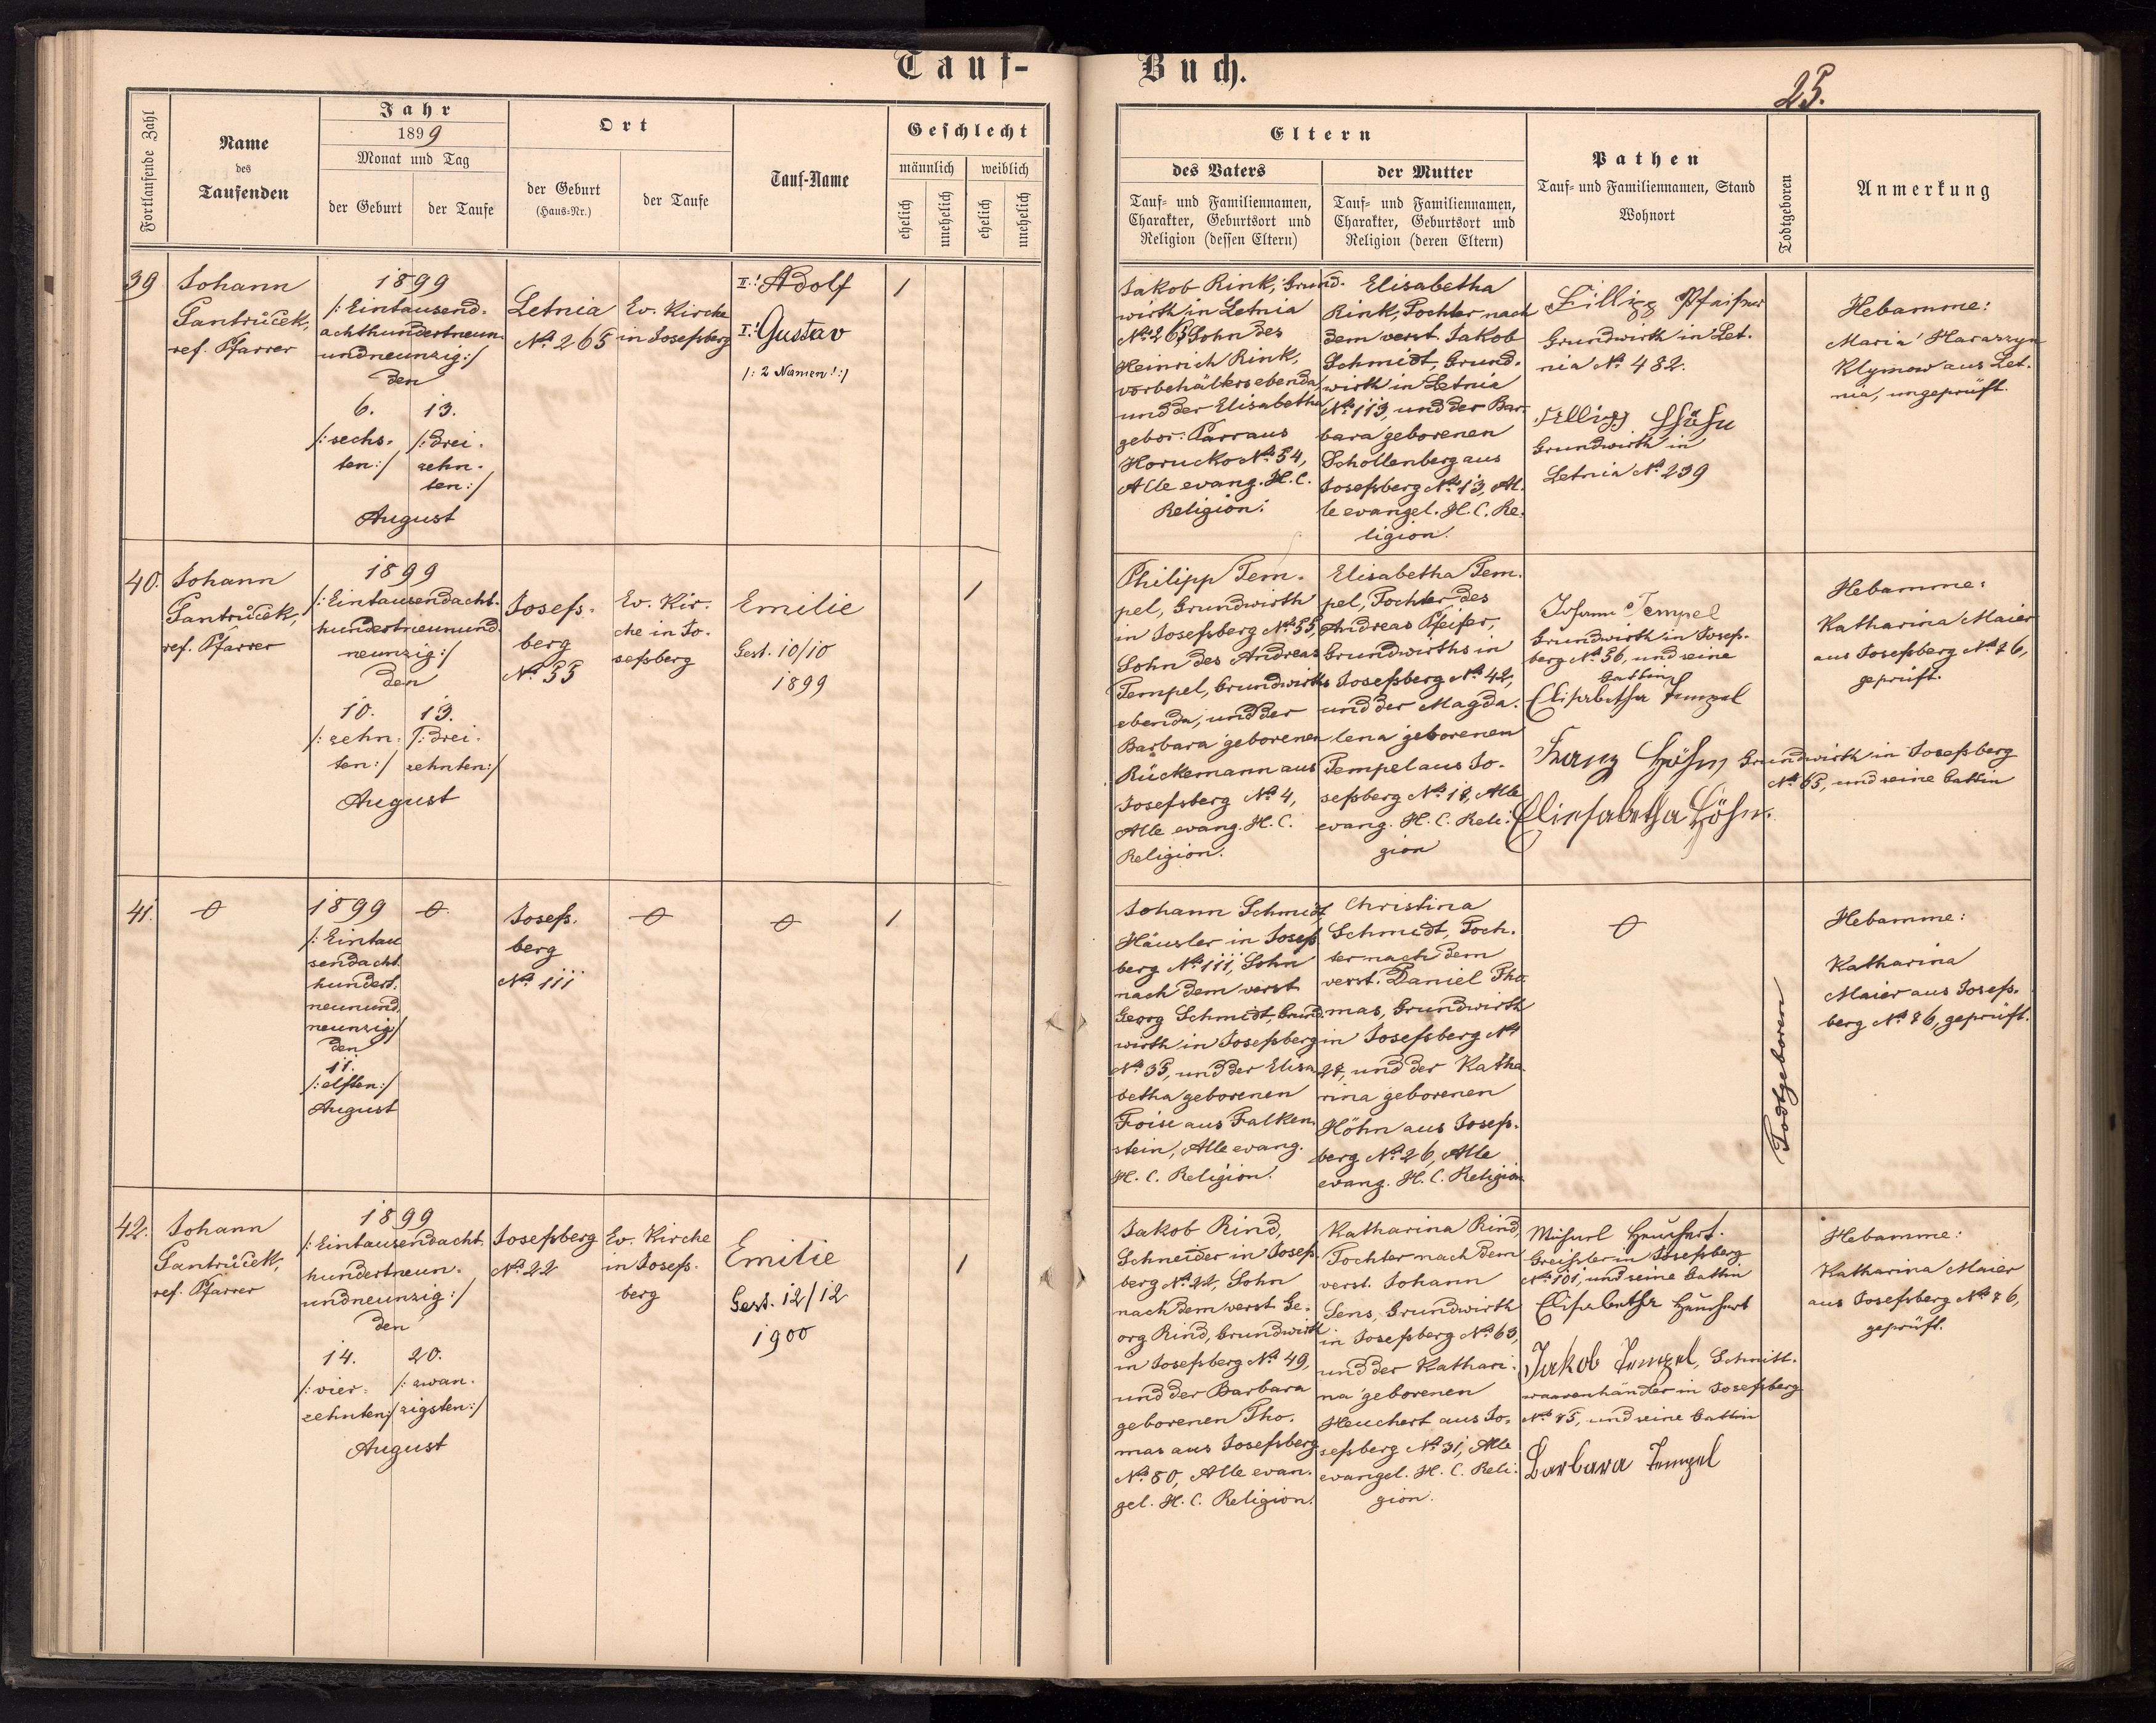 Tauf-
Buch.
25.
Fortlaufende Zahl
Name
des
Taufenden
Jahr
1899
Monat und Tag
der Geburt
der Taufe
Ort
der Geburt
(Haus-Nr.)
der Taufe
Tauf-Name
Geschlecht
männlich
weiblich
ehelich
unehelich
ehelich
unehelich
Eltern
des Vaters
Tauf- und Familiennamen,
Charakter, Geburtsort und
Religion (dessen Eltern)
der Mutter
Tauf- und Familiennamen,
Charakter, Geburtsort und
Religion (deren Eltern)
Pathen
Tauf- und Familiennamen, Stand
Wohnort
Todtgeboren
Anmerkung
39
Johann
Jantrůček,
ref. Pfarrer
1899
/: Eintausend-
achthundertneun
undneunzig :/
den
6.
/: sechs-
ten :/
13.
/: drei-
zehn-
ten :/
August
Letnia
No 265
Ev. Kirche
in Josefsberg
II.! Adolf
I.! Gustav
/: 2 Namen! :/
1
Jakob Rink, Grund-
wirth in Letnia
No 265, Sohn des
Heinrich Rink,
vorbehälters ebenda,
und der Elisabetha
gebor: Parr aus
Horucko No 54,
Alle evang. H. C.
Religion.
Elisabetha
Rink, Tochter nach
dem verst. Jakob
Schmidt, Grund-
wirth in Letnia
No 113, und der Bar-
bara geborenen
Schollenberg aus
Josefsberg No 13, Al-
le evangel. H. C. Re-
ligion.
Grundwirth in Let-
nia No 482.
Grundwirth in
Letnia No 239
Hebamme:
Maria
Klymow aus Let-
nia, ungeprüft.
40.
Johann
Jantrůček,
ref. Pfarrer
1899
/: Eintausendacht-
hundertneunund-
neunzig :/
den
10.
/: zehn-
ten :/
13.
/: drei-
zehnten :/
August
Josefs-
berg
No 55
Ev. Kir-
che in Jo-
sefsberg
Emilie
Gest. 10/10
1899
1
Philipp Tem-
pel, Grundwirth
in Josefsberg No 55,
Sohn des Andreas
Tempel, Grundwirths
ebenda, und der
Barbara geborenen
Rückemann aus
Josefsberg No 4,
Alle evang. H. C.
Religion.
Elisabetha Tem-
pel, Tochter des
Andreas Pfeifer,
Grundwirths in
Josefsberg No 42,
und der Magda-
lena geborenen
Tempel aus Jo-
sefsberg No 18, Alle
evang. H. C. Reli-
gion
Johann Tempel
Grundwirth in Josefs-
berg No 56, und seine
Gattin
Elisabetha Tempel
Franz Höhn, Grundwirth in Josefsberg
No 65, und seine Gattin
Eliesabetha Höhn.
Hebamme:
Katharina Maier
aus Josefsberg No 76,
geprüft.
41.
1899
/: Eintau
sendacht
hundert-
neunund-
neunzig :/
den
11.
/: elften :/
August
Josefs-
berg
No 111
1
Johann Schmidt,
Häusler in Josefs
berg No 111, Sohn
nach dem verst
Georg Schmidt, Grund-
wirth in Josefsberg
No 35, und der Elisa
betha geborenen
Foise aus Falken-
stein, Alle evang.
H. C. Religion.
Christina
Schmidt, Toch-
ter nach dem
verst. Daniel Tho-
mas, Grundwirth
in Josefsberg No
27, und der Katha
rina geborenen
Höhn aus Josefs-
berg No 26, Alle
evang. H. C. Religion
Todtgeboren
Hebamme:
Katharina
Maier aus Josefs-
berg No 76, geprüft.
42.
Johann
Jantrůček,
ref. Pfarrer
1899
/: Eintausendacht-
hundertneun-
undneunzig :/
den
14.
/: vier-
zehnten :/
20.
/: zwan-
zigsten :/
August
Josefsberg
No 22
Ev. Kirche
in Josefs-
berg
Emilie
Gest. 12/12
1900
1
Jakob Rind,
Schneider in Josefs-
berg No 22, Sohn
nach dem verst. Ge-
org Rind, Grundwirth
in Josefsberg No 49,
und der Barbara
geborenen Tho-
mas aus Josefsberg
No 80, Alle evan-
gel. H. C. Religion.
Katharina Rind,
Tochter nach dem
verst. Johann
Jens, Grundwirth
in Josefsberg No 63,
und der Kathari-
na geborenen
Heuchert aus Jo-
sefsberg No 31, Alle
evangel. H. C. Reli-
gion.
Michael Heuchert.
Greisler in Josefsberg
No 101, und seine Gattin
Elisabetha Heuchert
Jakob Tempel, Schnitt-
waarenhändler in Josefsberg
No 75, und seine Gattin
Barbara Tempel
Hebamme:
Katharina Maier
aus Josefsberg No 76,
geprüft.